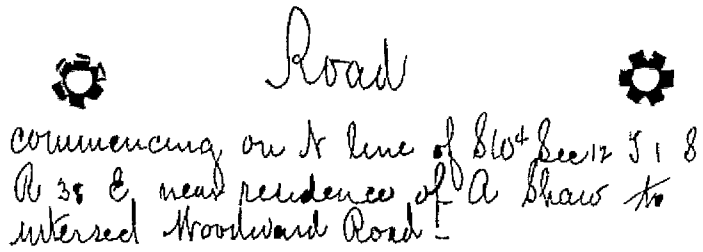 Road
commencing on N line of SW4 Sec 12 T 1 S
R 38 E near residence of A Shaw to
intersect Woodward Road -